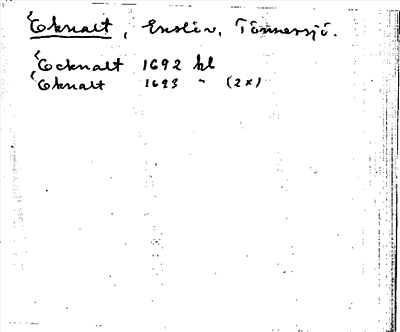 Eknalt, Enslöv, Tönnersjö.
Ecknalt 1692 kl
Eknalt 1693 " (2x)